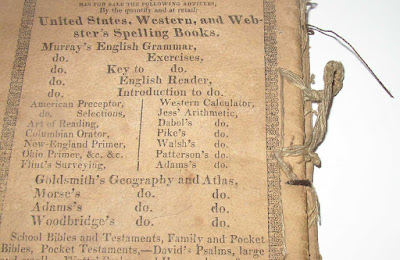 HAS FOR SALE THE FOLLOWING ARTICLES,
By the quantity and at retail:
United States, Western, and Web-
ster's Spelling Books.
Murray's English Grammar,
do. Exercises,
do. Key to do.
do. English Reader,
do. Introduction to do.
American Preceptor,
do. Selections,
Art of Reading,
Columbian Orator,
New-England Primer,
Ohio Primer, &c. &c.
Flint's Surveying,
Western Calculator,
Jess' Arithmetic,
Dabol's do.
Pike's do.
Walsh's do.
Patterson's do.
Adams's do.
Goldsmith's Geography and Atlas,
Morse's do. do.
Adams's do. do.
Woodbridge's do. do.
School Bibles and Testaments, Family and Pocket
Bibles, Pocket Testaments,—David's Psalms, large
and small